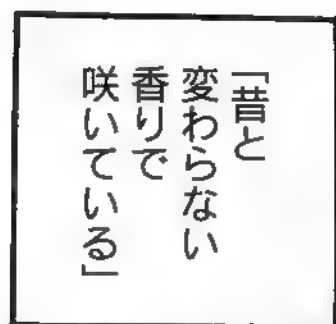 「昔と
変わらない
香りで
咲いている」